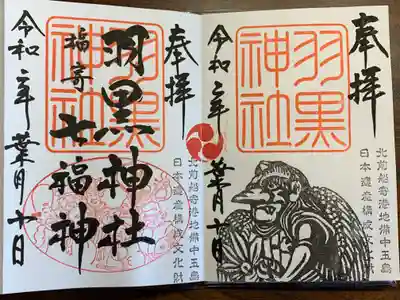 奉拝
羽黒神社
北前船寄港地備中玉島
日本遺産構成文化財
令和二年葉月十日
奉拝
羽黒神社
北前船寄港地備中玉島
日本遺産構成文化財
羽黒神社
福寄七福神
令和二年葉月十日